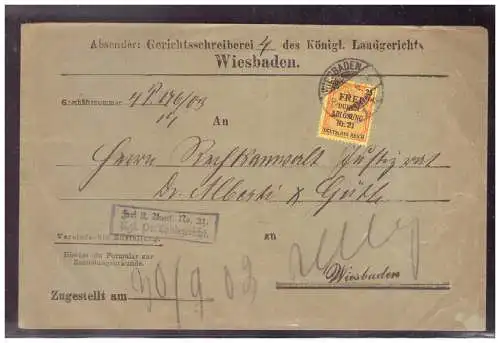 Absender: Gerichtsschreiberei 4 des Königl. Landgerichts
Wiesbaden.
Geschäftsnummer
An
WIESBADEN
FREI
DURCH
ABLÖSUNG
Nr. 21
DEUTSCHES REICH
Herrn Rechtsanwalt Justizrat
Dr. Alberti &
Frei lt. Avers. No. 21.
Kgl. Pr. Landgericht.
Vereinfachte Zustellung.
Hierbei ein Formular zur
Zustellungsurkunde.
zu
Wiesbaden
Zugestellt am 30/9 03